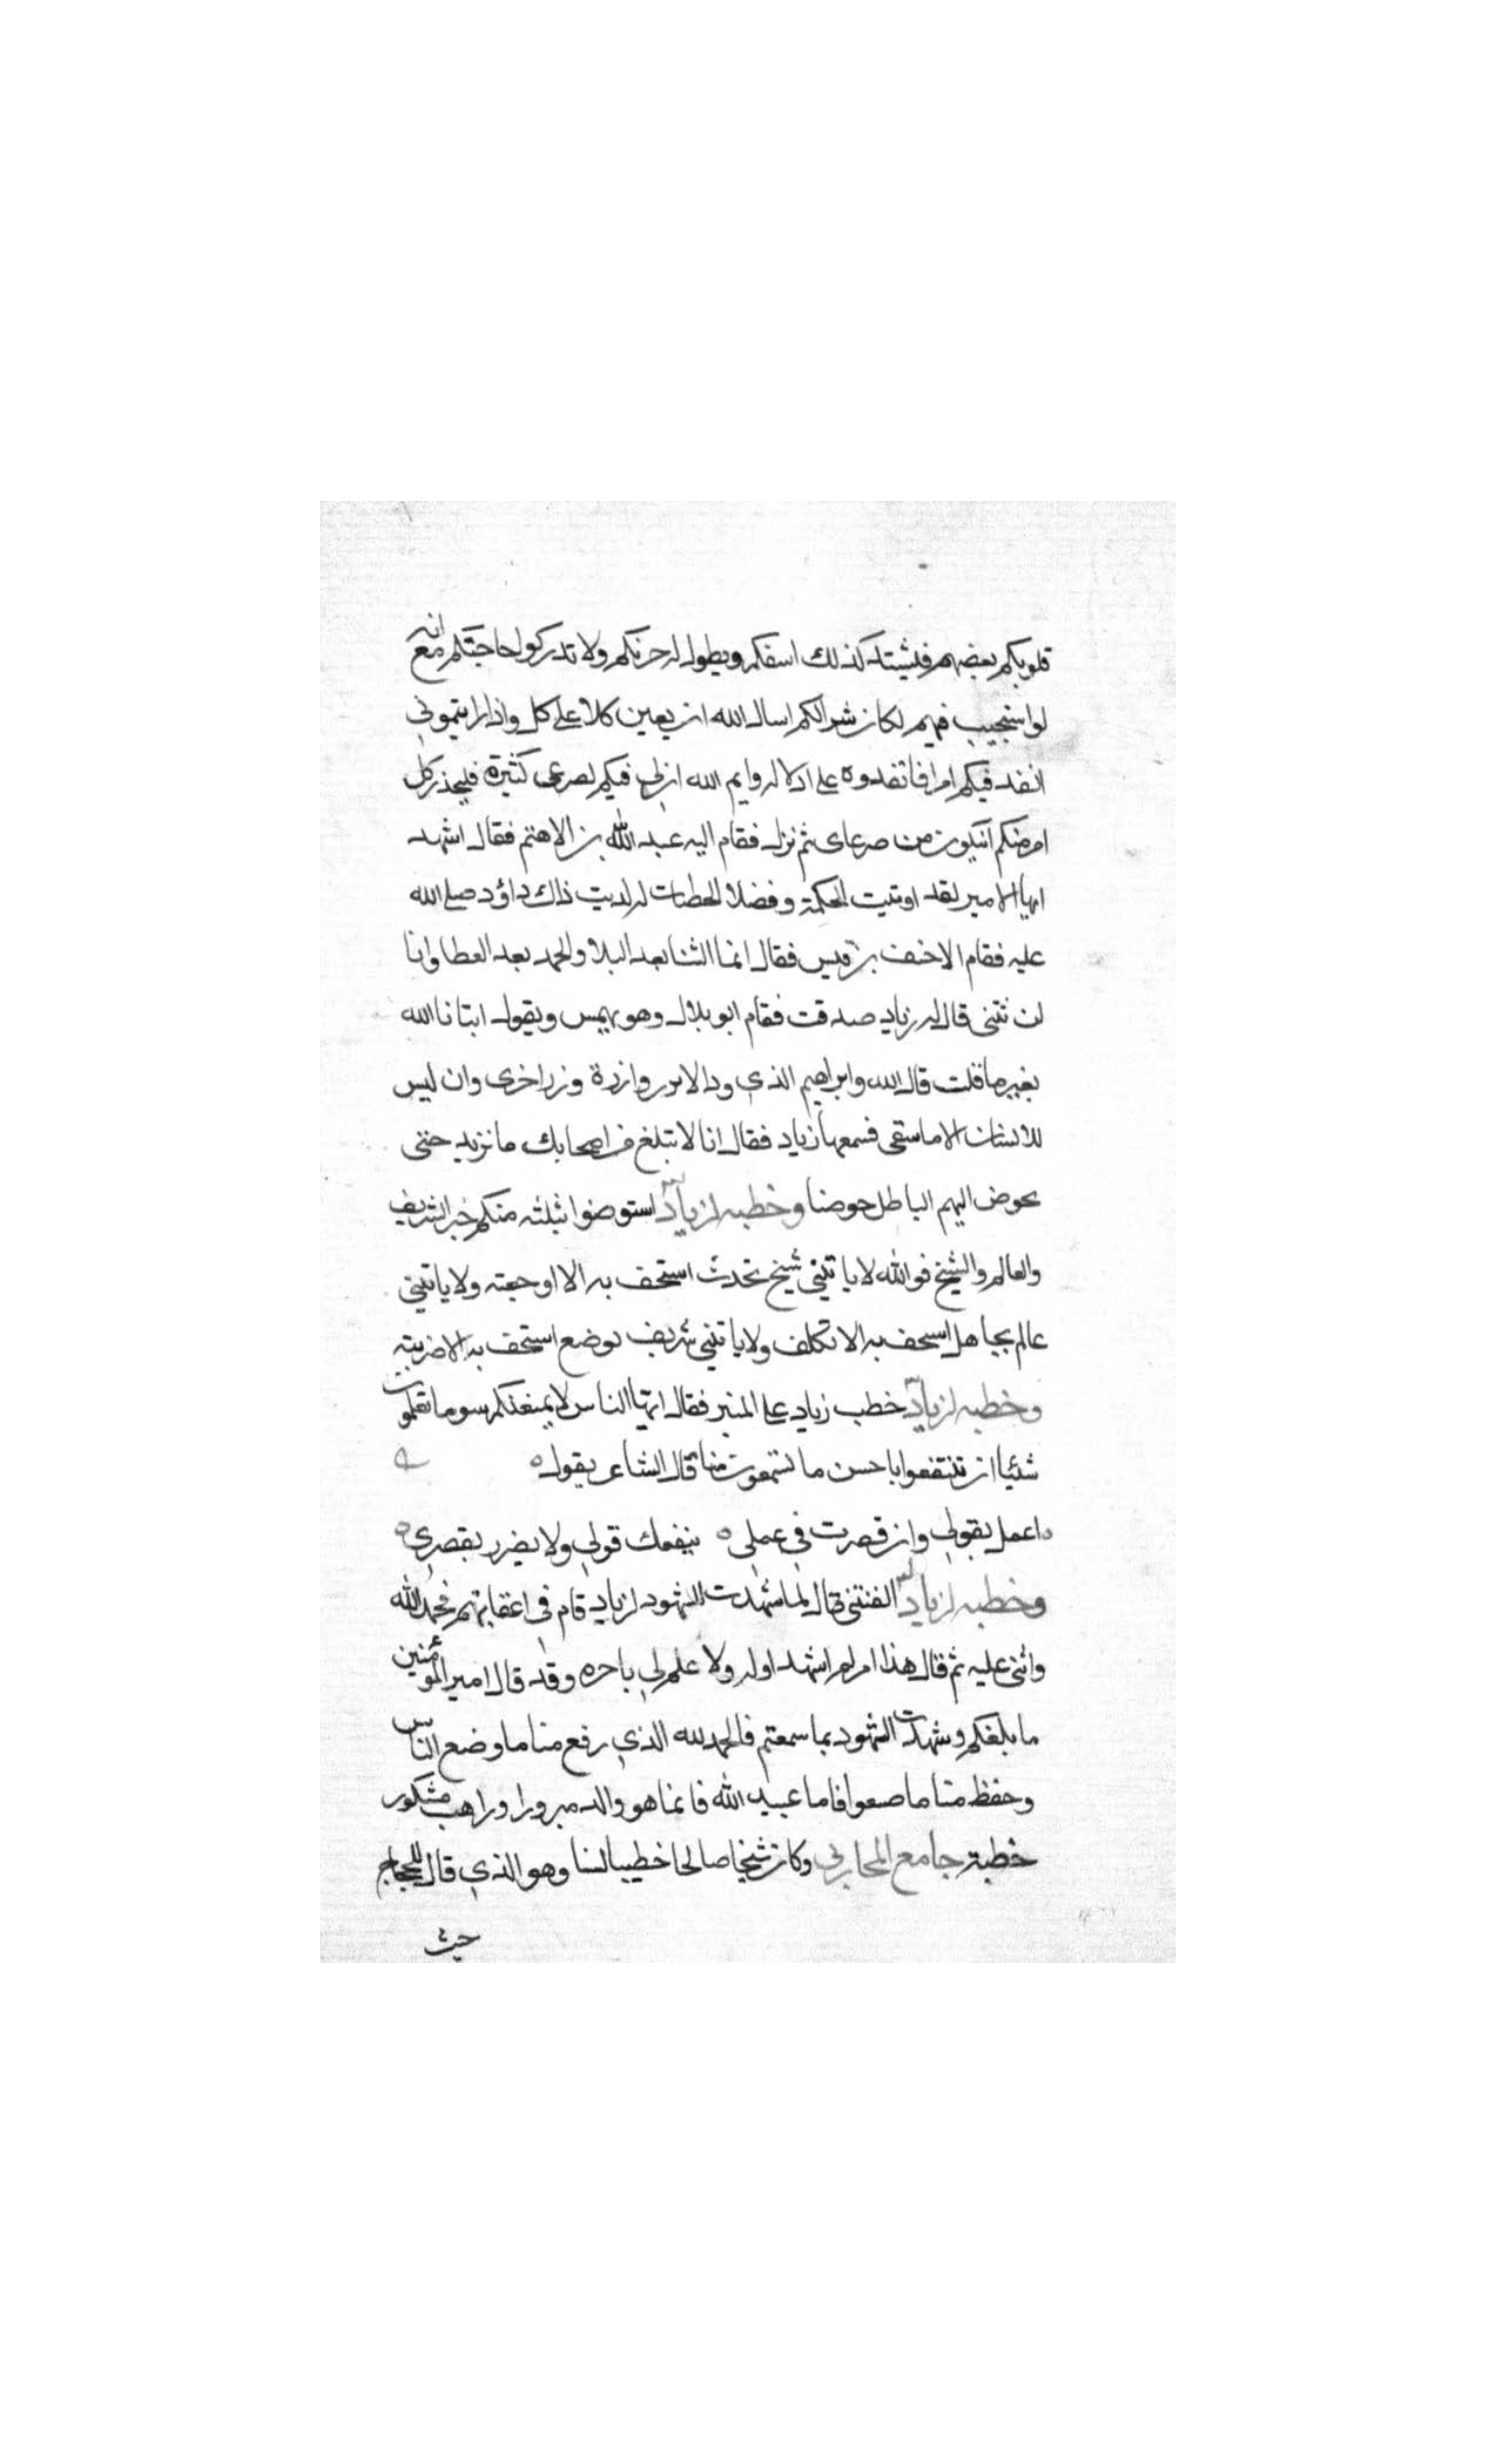 قلوبكم بعضهم فيشتد كذلك اسفكم ويطول له حزنكم ولا تدركوا حاجتكم مع انه
لو استجيب فيهم لكان شرا لكم اسال الله ان يعين كلا على كل واذا رايتموني
انفد فيكم امرا فانفدوه على ادلاله وايم الله ان لي فيكم لصرعى كثيرة فليحذر كل
امر منكم ان يكون من صرعاى ثم نزل فقام اليه عبد الله بن الاهتم فقال اشهد
ايها الامير لقد اوتيت الحكمة وفضل الخطاب له كذبت ذاك داؤد صلى الله
عليه فقام الاحنف بن قيس فقال انما الثنا بعد البلا والحمد بعد العطا وانا
لن نثنى قال له زياد صدقت فقام ابو بلال وهو يهمس ويقول انبانا الله
بغير ما قلت قال الله وابراهيم الذي وفا الا تزر وازرة وزر اخرى وان ليس
للانسان الا ما سعى فسمعها زياد فقال انا لا نبلغ في اصحابك ما نريد حتى
نخوض اليهم الباطل خوضا وخطبه لزياد استوصوا بثلثه منكم خيرا الشريف
والعالم والشيخ فوالله لا ياتيني شيخ بحدث استخف به الا اوجعته ولا ياتيني
عالم بجاهل استخف به الا نكلت ولا ياتيني شريف بوضيع استخف به الا ضربته
وخطبه لزياد خطب زياد على المنبر فقال ايها الناس لا يمنعنكم سو ما تعلمون
شئيا ان تنتفعوا باحسن ما تستمعون منا قال الشاعر يقول
اعمل بقولي وان قصرت في عملي ينفعك قولي ولا يضرر بقصري
وخطبه لزياد العتبي قال لما شهدت الشهود لزياد قام في اعقابهم فحمد الله
واثنى عليه ثم قال هذا امر لم اشهد اوله ولا علم لي باخره وقد قال امير المؤمنين
ما بلغكم وشهدت الشهود بما سمعتم فالحمد لله الذي رفع منا ما وضع الناس
وحفظ منا ما ضيعوا فاما عبيد الله فانما هو والد مبرور او راهب مشكور
خطبة جامع المحاربي وكان شيخا صالحا خطيبا لسنا وهو الذي قال للحجاج
حيث